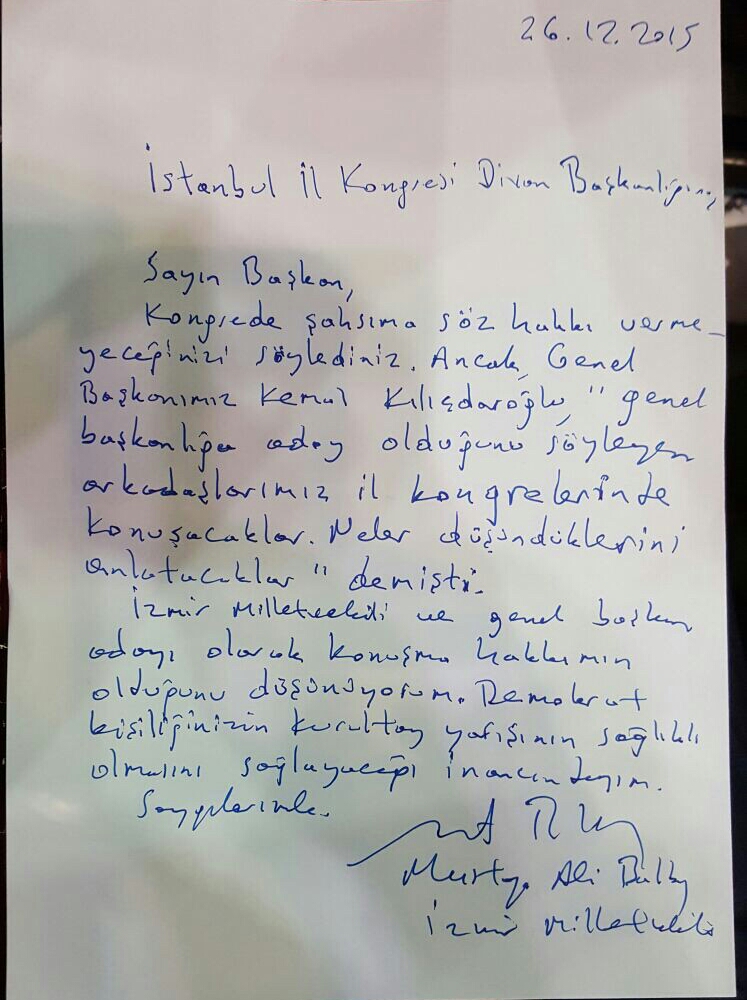 26.12.2015
İstanbul İl Kongresi Divan Başkanlığına,
Sayın Başkan,
Kongrede şahsıma söz hakkı verme-
yeceğinizi söylediniz. Ancak, Genel
Başkanımız Kemal Kılıçdaroğlu, "genel
başkanlığa aday olduğunu söyleyen
arkadaşlarımız il kongrelerinde
konuşacaklar. Neler düşündüklerini
anlatacaklar" demişti.
İzmir Milletvekili ve genel başkan
adayı olarak konuşma hakkımın
olduğunu düşünüyorum. Demokrat
kişiliğinizin kurultay yarışının sağlıklı
olmasını sağlayacağı inancındayım.
Saygılarımla.
Mustafa Ali Balbay
İzmir Milletvekili